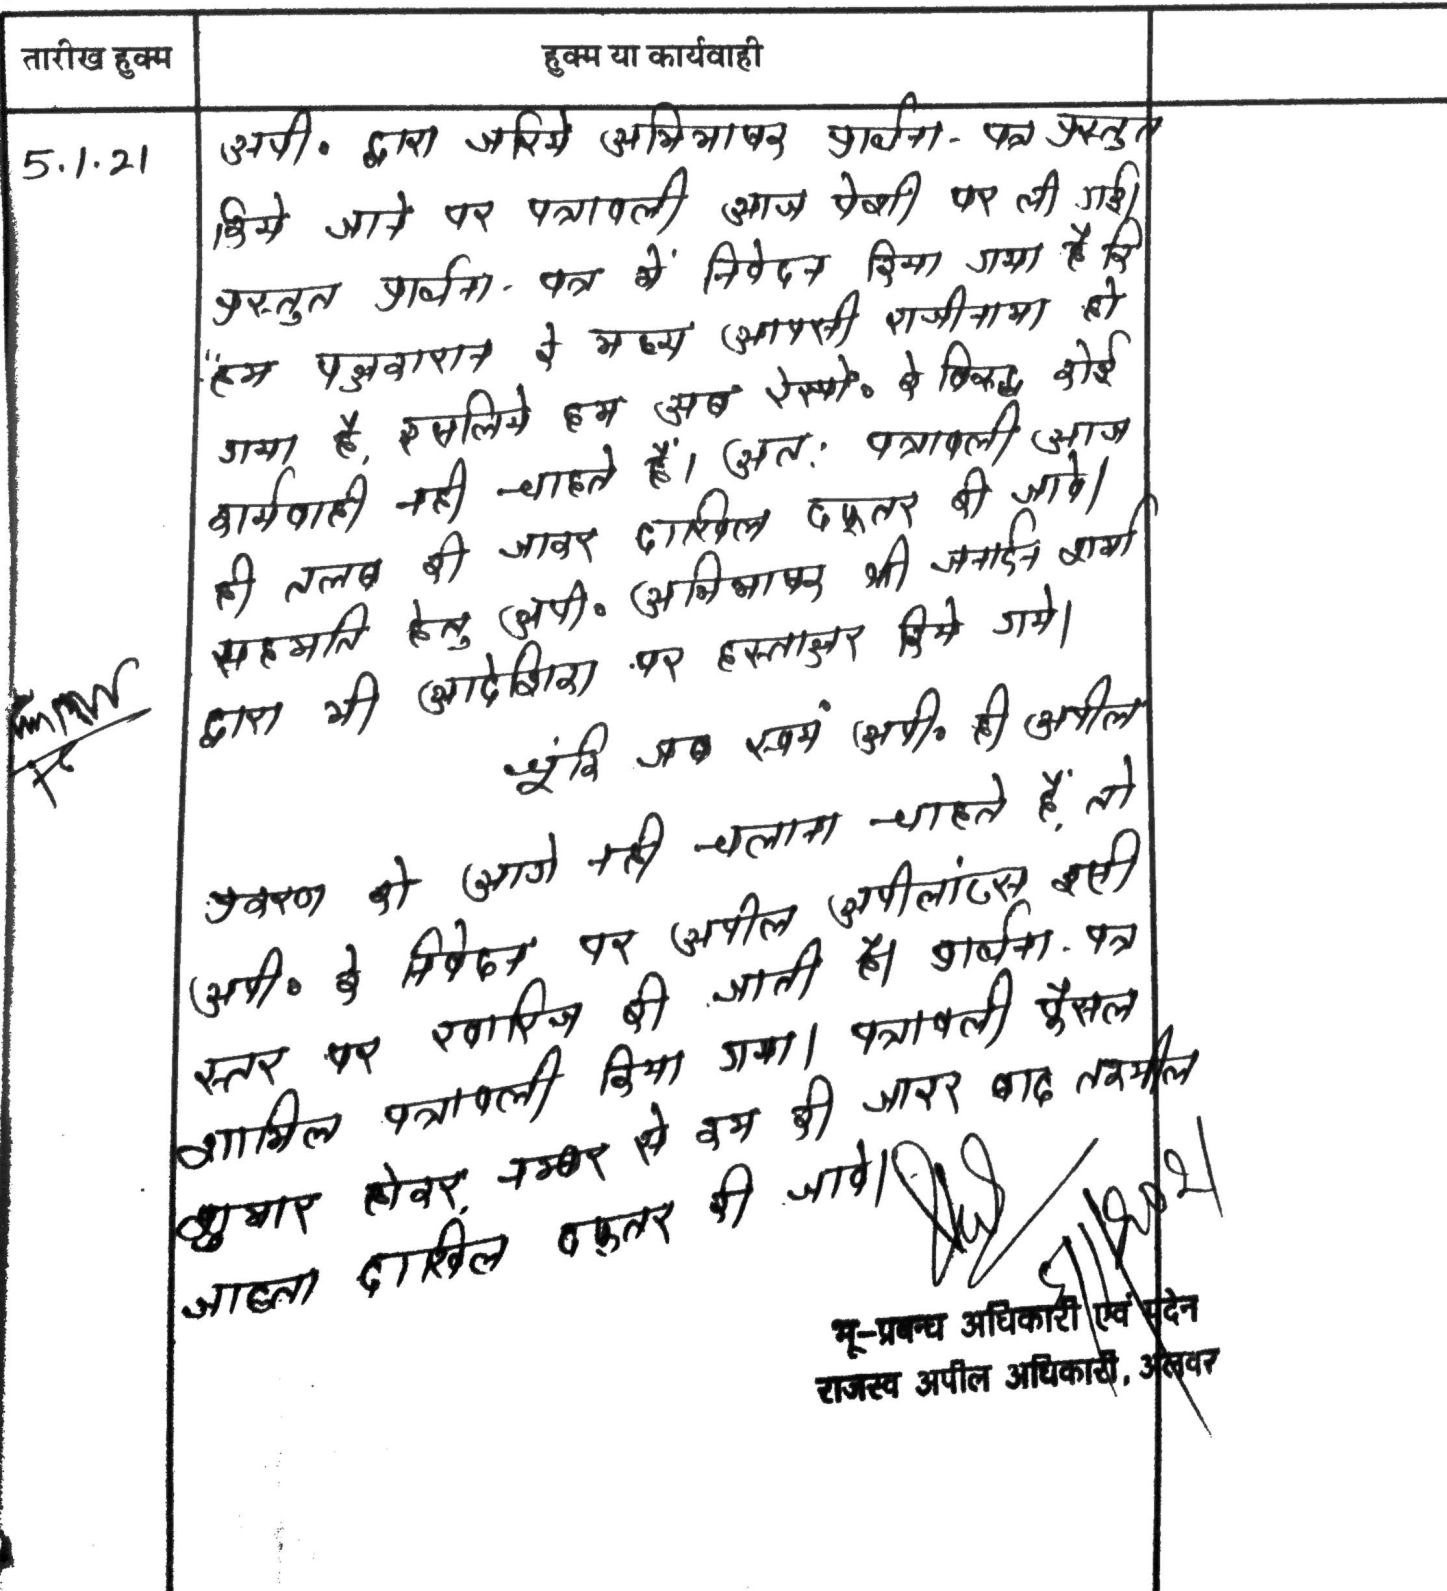 तारीख हुक्म
हुक्म या कार्यवाही
5.1.21
अपी० द्वारा जरिये अभिभाषक प्रार्थना-पत्र प्रस्तुत
किये जाने पर पत्रावली आज पेशी पर ली गई।
प्रस्तुत प्रार्थना-पत्र में निवेदन किया गया है कि
"हम पक्षकारान के मध्य आपसी राजीनामा हो
गया है, इसलिये हम अब रेस्पो० के विरूद्ध कोई
कार्यवाही नही चाहते हैं। अत: पत्रावली आज
ही तलब की जाकर दाखिल दफ्तर की जावे।
सहमति हेतु अपी० अभिभाषक श्री जनार्दन शर्मा
द्वारा भी आदेशिका पर हस्ताक्षर किये गये।
चूंकि जब स्वयं अपी० ही अपील
प्रकरण को आगे नही चलाना चाहते हैं, तो
अपी० के निवेदन पर अपील अपीलांटस इसी
स्तर पर खारिज की जाती है। प्रार्थना-पत्र
शामिल पत्रावली किया गया। पत्रावली फैसल
शुमार होकर, नम्बर से कम की जाकर बाद तकमील
जाब्ता दाखिल दफ्तर की जावे।
भू-प्रबन्ध अधिकारी एवं पदेन
राजस्व अपील अधिकारी, अलवर